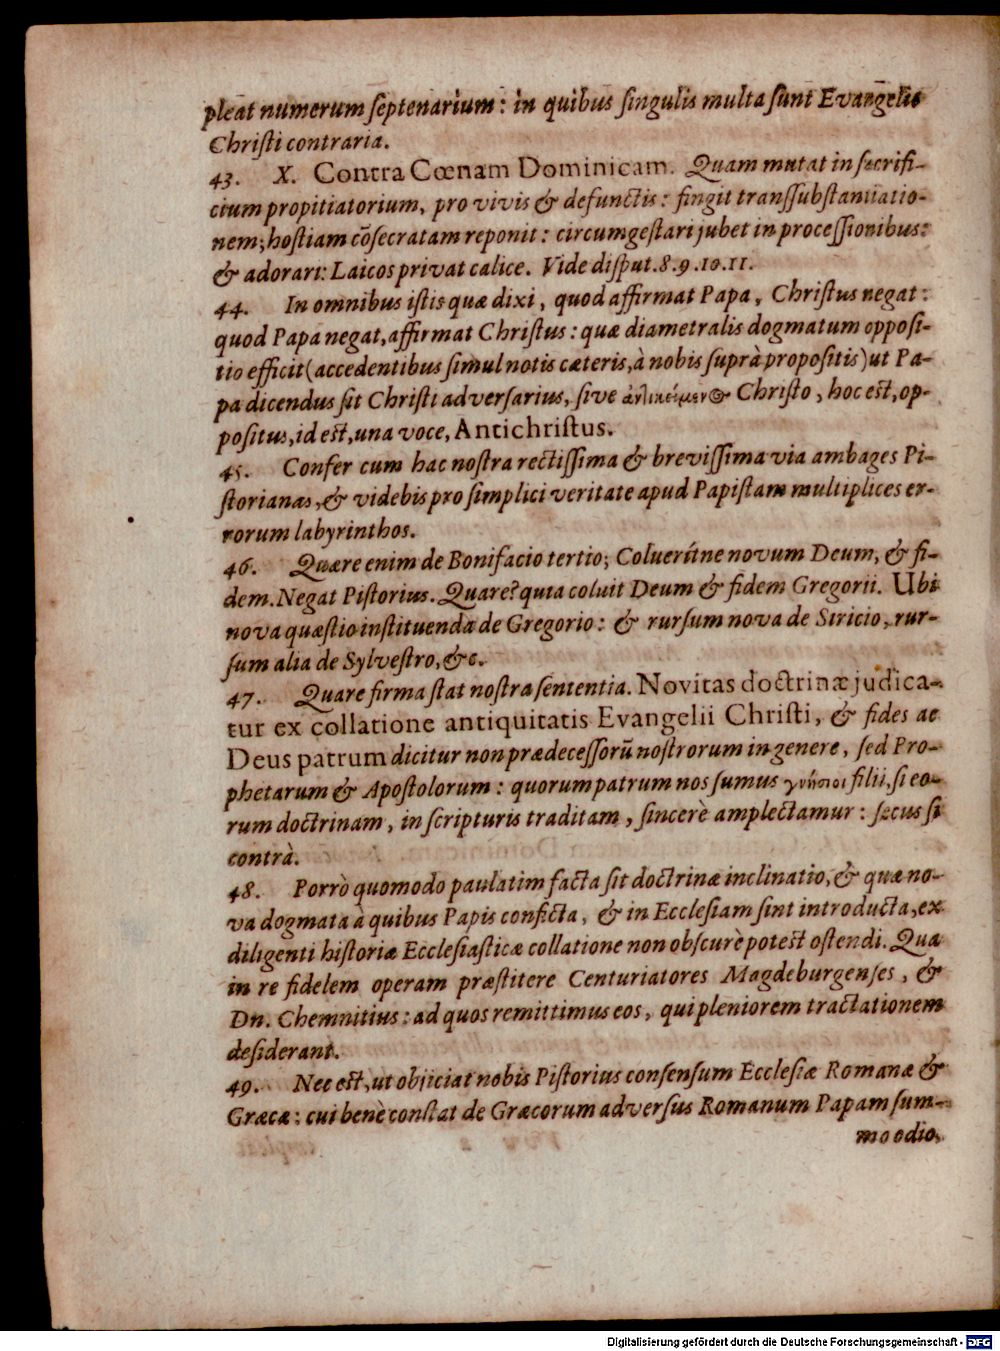 pleat numerum septenarium: in quibus singulis multa sunt Evangelio
Christi contraria.
43. X. Contra Cœnam Dominicam. Quam mutat in sacrifi-
cium propitiatorium, pro vivis & defunctis: fingit transsubstantiatio-
nem; hostiam cōsecratam reponit: circumgestari jubet in processionibus:
& adorari: Laicos privat calice. Vide disput. 8. 9. 10. 11.
44. In omnibus istis quæ dixi, quod affirmat Papa, Christus negat:
quod Papa negat, affirmat Christus: quæ diametralis dogmatum opposi-
tio efficit (accedentibus simul notis cæteris, à nobis suprà propositis) ut Pa-
pa dicendus sit Christi adversarius, sive ἀντικείμενος Christo, hoc est, op-
positus, id est, una voce, Antichristus.
45. Confer cum hac nostra rectissima & brevissima via ambages Pi-
storianas, & videbis pro simplici veritate apud Papistam multiplices er-
rorum labyrinthos.
46. Quære enim de Bonifacio tertio; Coluerũtne novum Deum, & fi-
dem. Negat Pistorius. Quare? quia coluit Deum & fidem Gregorii. Ubi
nova quæstio instituenda de Gregorio: & rursum nova de Siricio, rur-
sum alia de Sylvestro, &c.
47. Quare firma stat nostra sententia. Novitas doctrinæ judica-
tur ex collatione antiquitatis Evangelii Christi, & fides ac
Deus patrum dicitur non prædecessorũ nostrorum in genere, sed Pro-
phetarum & Apostolorum: quorum patrum nos sumus γνήσιοι filii, si eo-
rum doctrinam, in scripturis traditam, sincerè amplectamur: secus si
contrà.
48. Porrò quomodo paulatim facta sit doctrinæ inclinatio, & quæ no-
va dogmata à quibus Papis conficta, & in Ecclesiam sint introducta, ex
diligenti historiæ Ecclesiasticæ collatione non obscurè potest ostendi. Qua
in re fidelem operam præstitere Centuriatores Magdeburgenses, &
Dn. Chemnitius: ad quos remittimus eos, qui pleniorem tractationem
desiderant.
49. Nec est, ut objiciat nobis Pistorius consensum Ecclesiæ Romanæ &
Græcæ: cui benè constat de Græcorum adversus Romanum Papam sum-
mo odio,
Digitalisierung gefördert durch die Deutsche Forschungsgemeinschaft - DFG